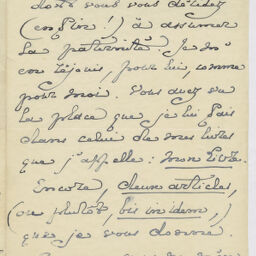 dont vous vous décidez
(enfin !) à assumer
la paternité. Je m'
en réjouis, pour lui, comme
pour moi. Vous avez vu
la place que je lui fais
dans celui de mes livres
que j'appelle : mon Livre.
Encore, deux articles,
(ou plutôt, bis in idem,)
que je vous donne.